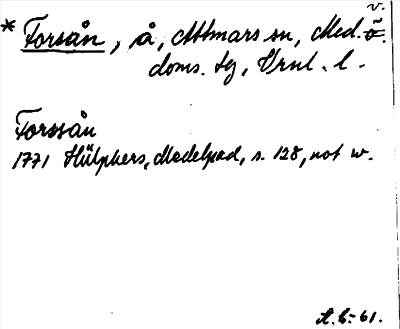 * Forsån, å, Attmars sn, Med. v. ö.
doms. tg, Vrnl. l.
Forssån
1771 Hülphers, Medelpad, s. 128, not w.
A.b. -61.